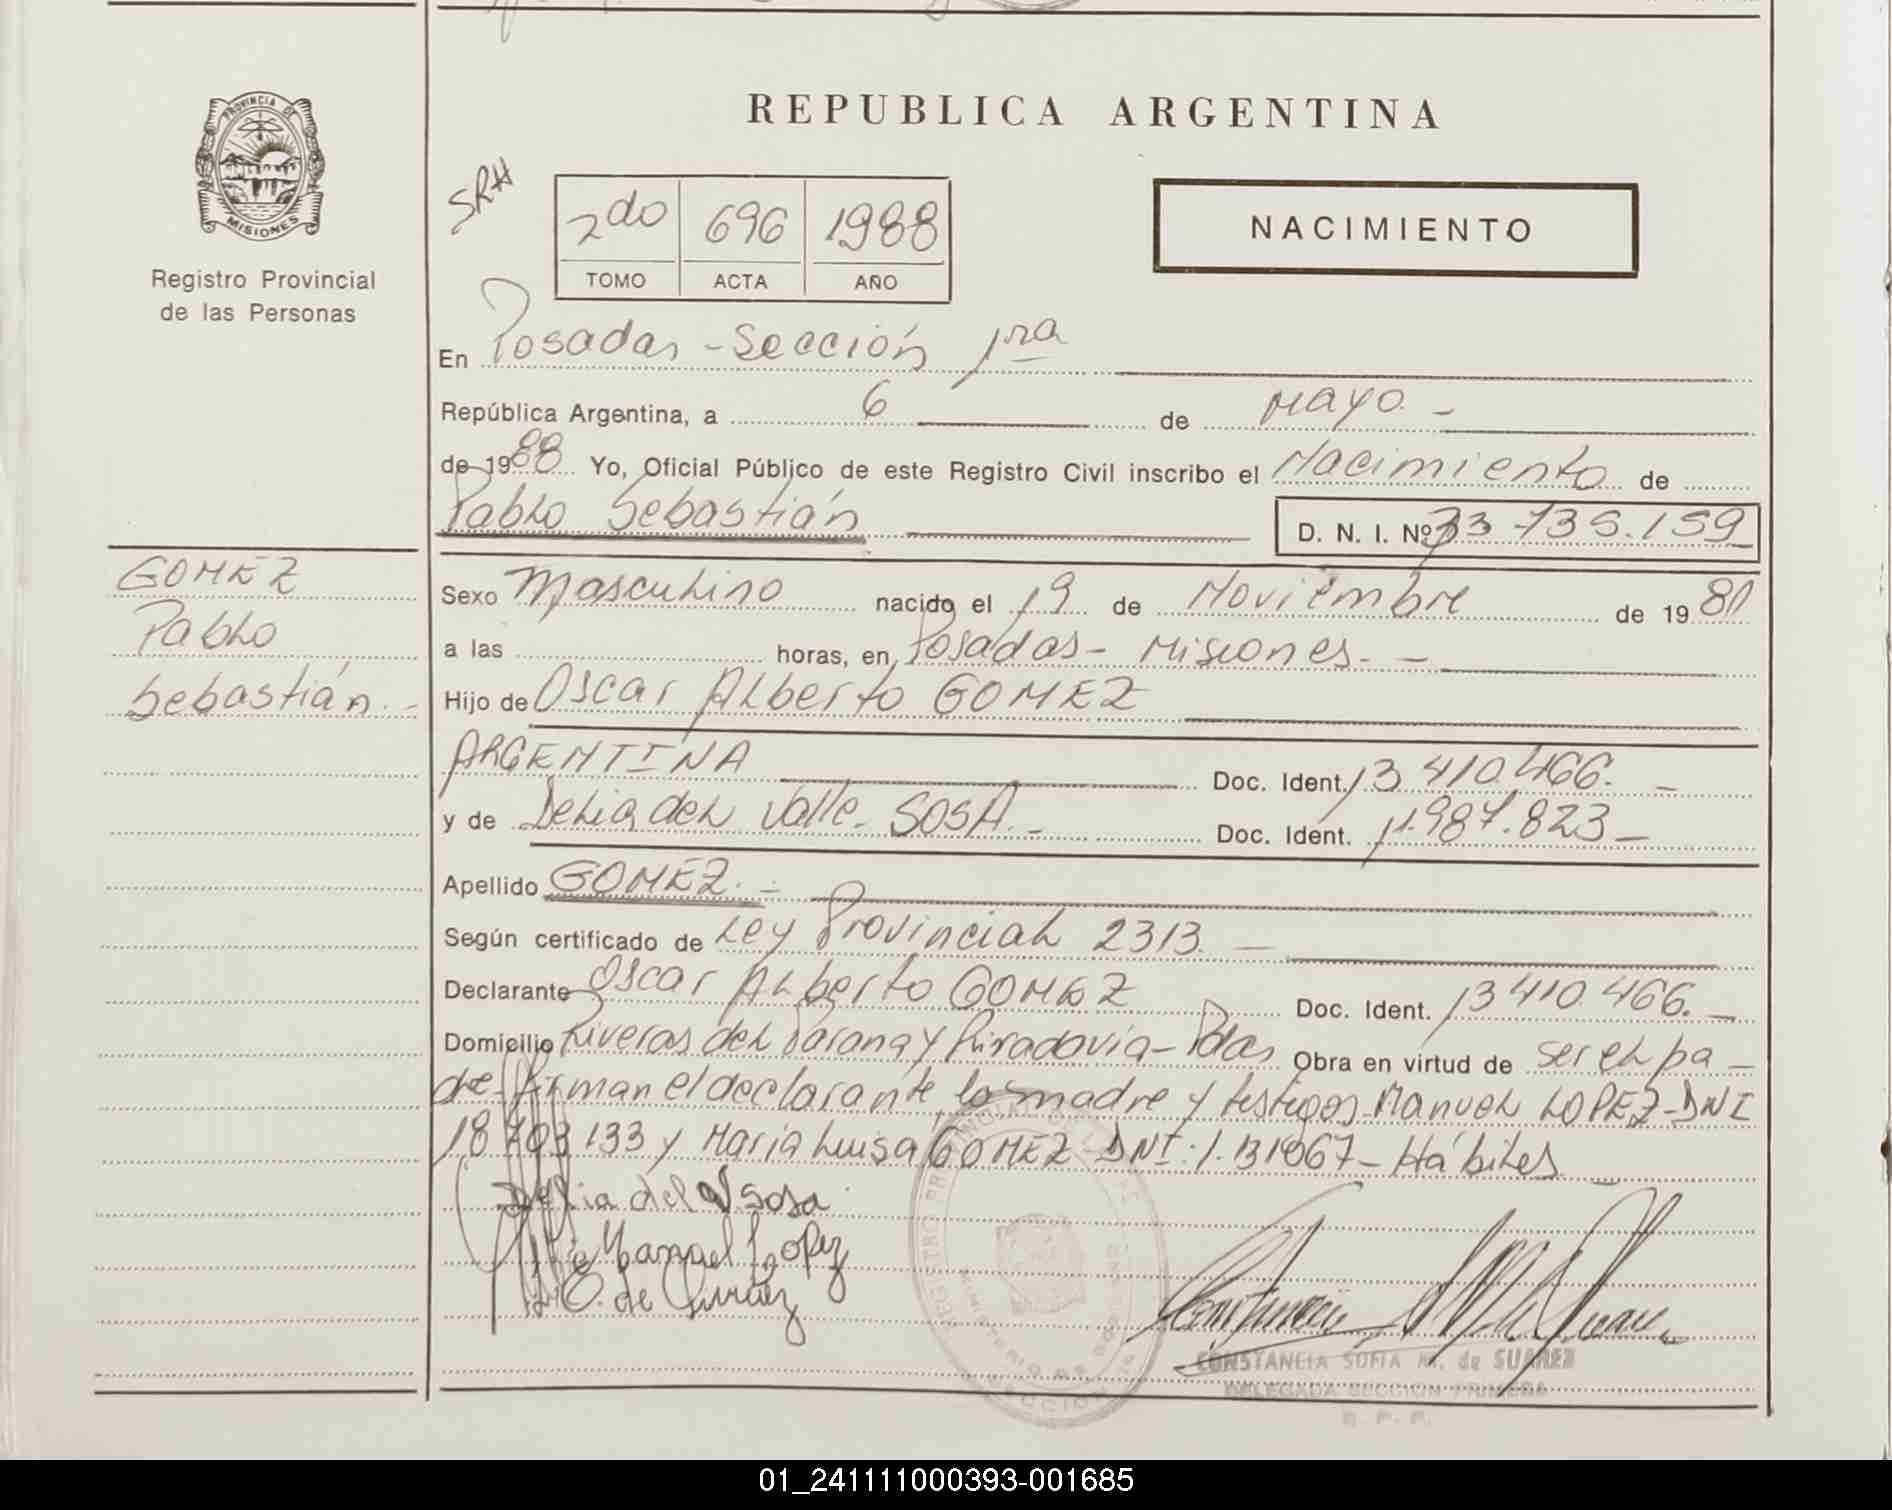 REPUBLICA ARGENTINA
PROVINCIA DE
MISIONES
Registro Provincial
de las Personas
SRH
2do 696 1988
TOMO ACTA AÑO
NACIMIENTO
En Posadas - Sección 1ra
República Argentina, a 6 de Mayo. -
de 1988 Yo, Oficial Público de este Registro Civil inscribo el Nacimiento de
Pablo Sebastián
D. N. I. Nº 33 735.159
GOMEZ
Pablo
Sebastián. -
Sexo Masculino nacido el 19 de Noviembre de 19
a las horas, en Posadas - Misiones. -
Hijo de Oscar Alberto GOMEZ
ARGENTINA Doc. Ident. 13 410.466. -
y de Delia del Valle SOSA. - Doc. Ident. 11.987.823 -
Apellido GOMEZ. -
Según certificado de Ley Provincial 2313. -
Declarante Oscar Alberto GOMEZ Doc. Ident. 13 410.466. -
Domicilio Riveras del Parana y Rivadavia - Pdas Obra en virtud de ser el pa -
dre - firman el declarante la madre y testigos Manuel LOPEZ - DNI
18 703 133 y Maria Luisa GOMEZ DNI. - Hábiles
Delia del V Sosa
Manuel Lopez
de
CONSTANCIA SOFIA M. de SUAREZ
DELEGADA SECCION PRIMERA
R. P. P.
01_241111000393-001685